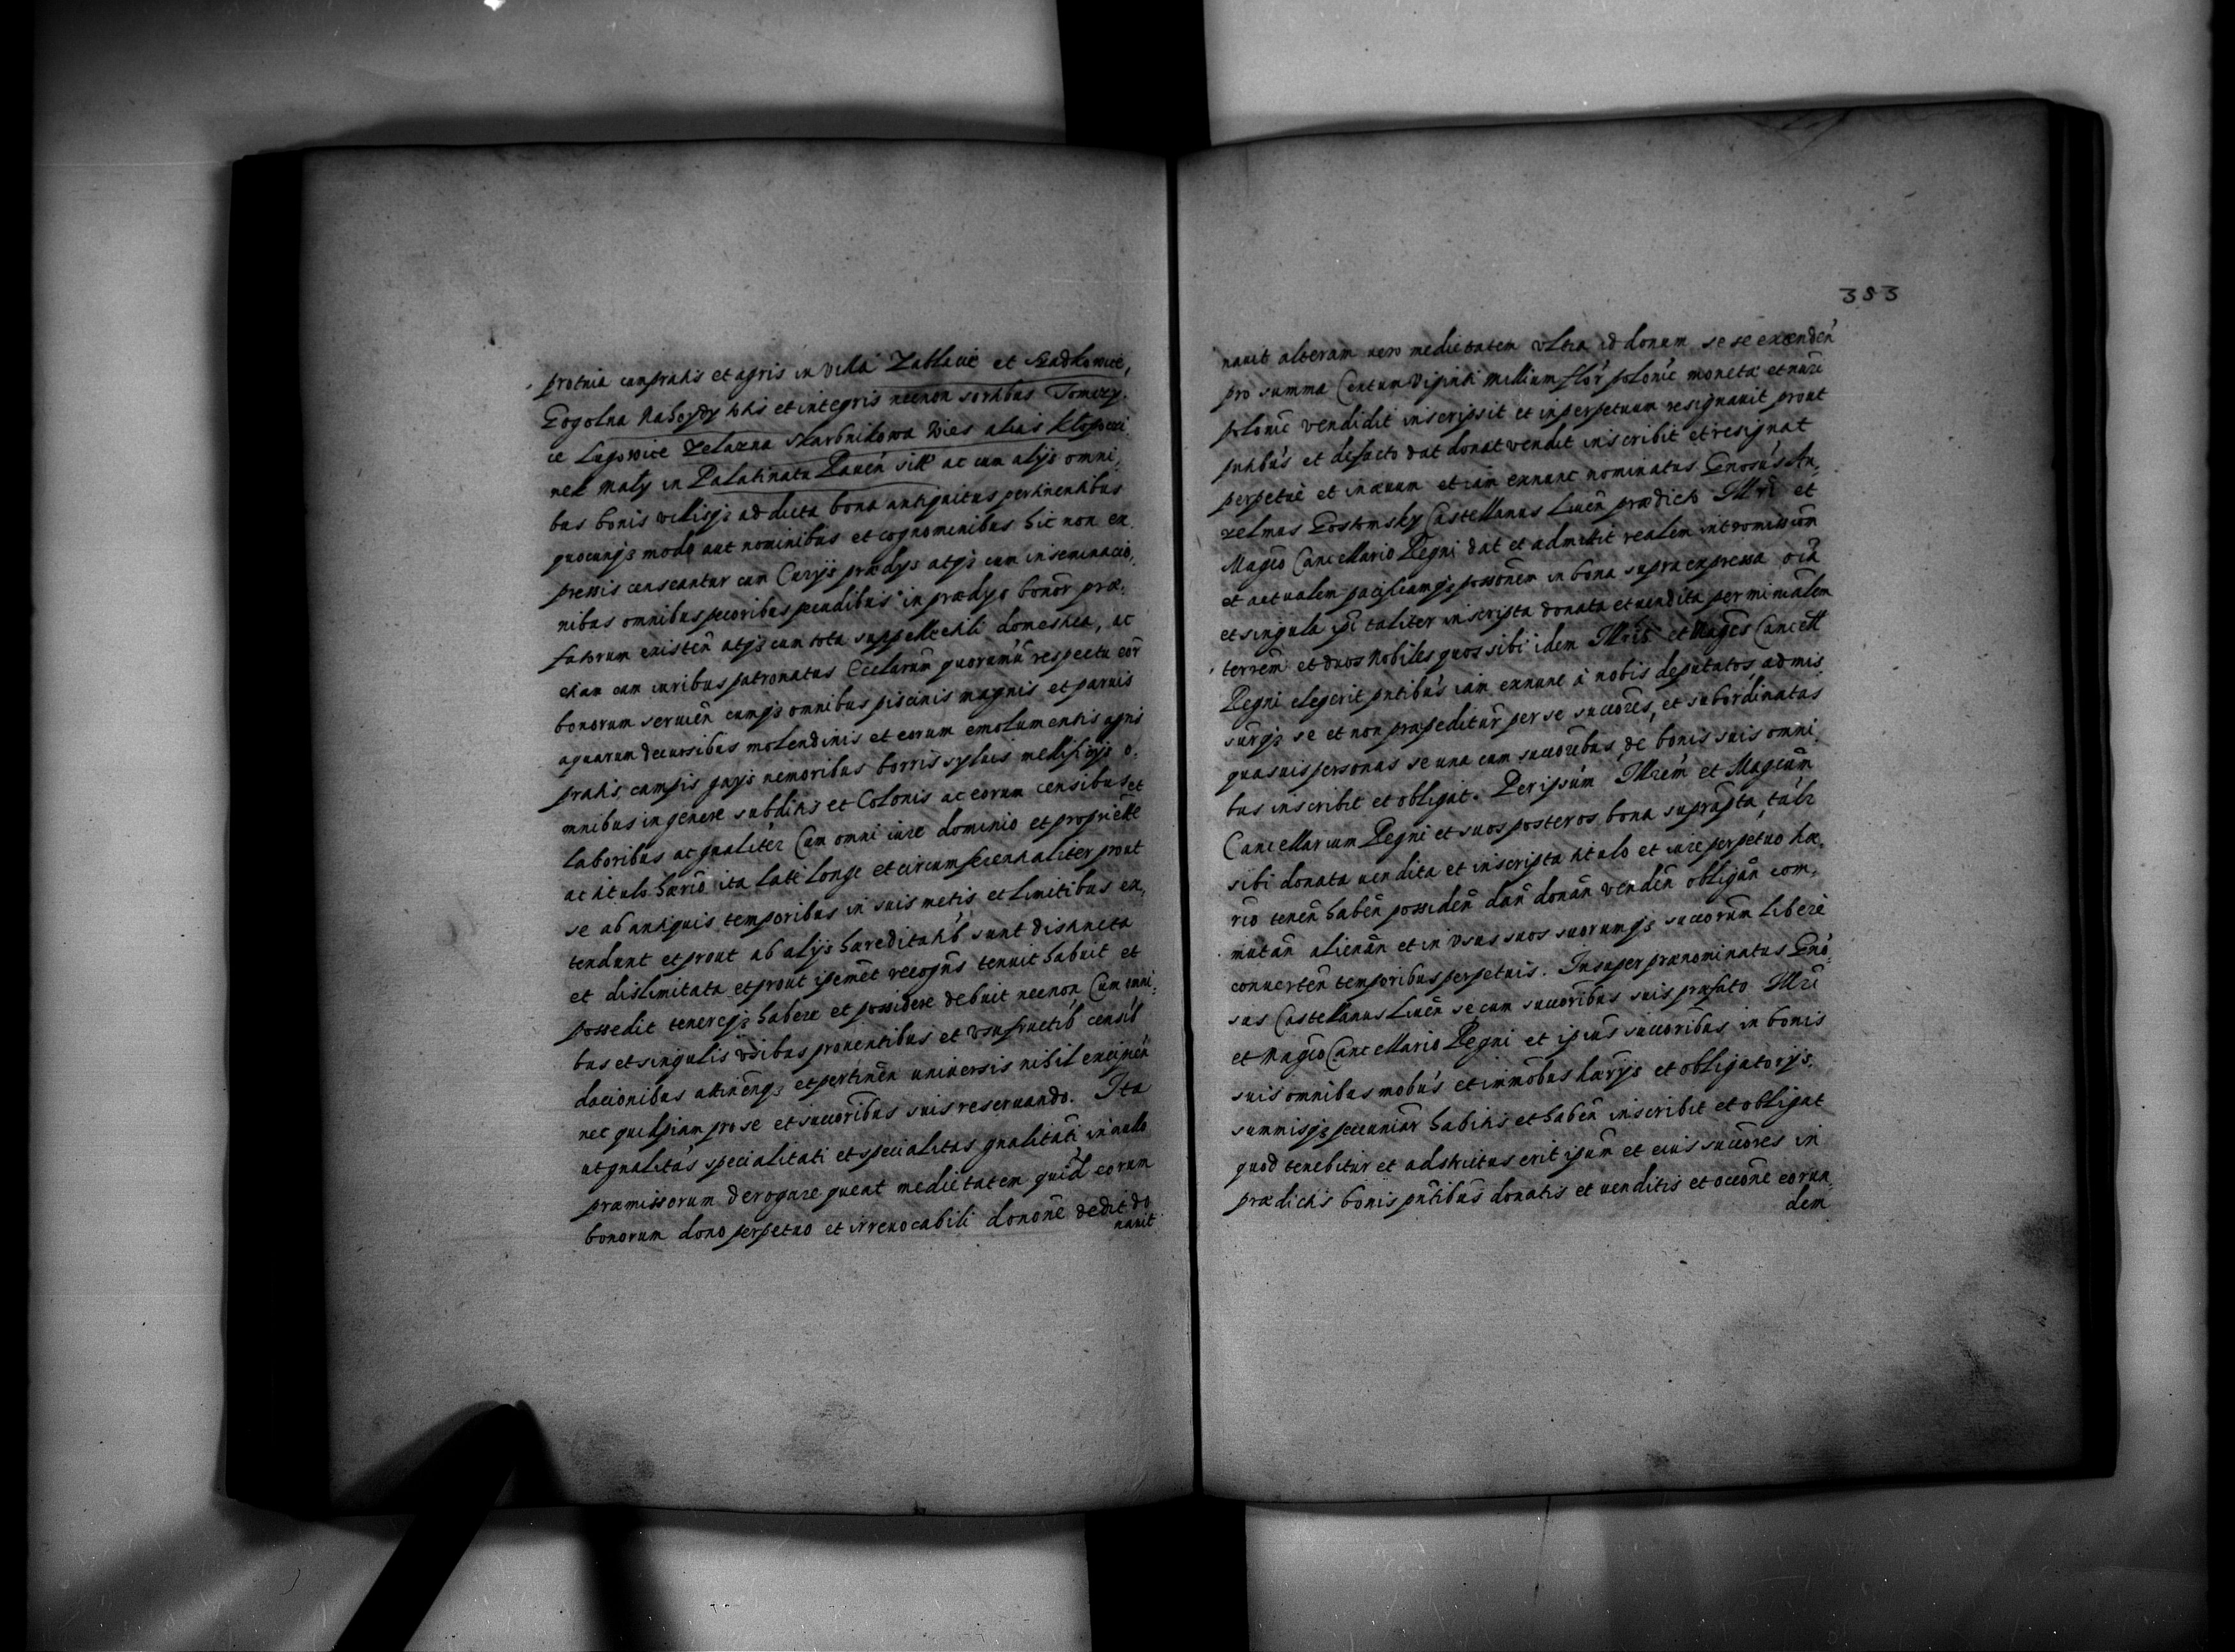 protnia cum pratis et agris in villa Zablacie et Szadkowice,
Gogolna Nahozdy totis et integris necnon sortibus Tomczy,
ce Lugowice Zelazna Skarbnikowa Wies alias Klopoczi
nek Maly in Palatinatu Raueń sitis ac cum alijs omni,
bus bonis villisqz ad dicta bona antiquitus pertinentibus
quocunqz modo aut nominibus et cognominibus hic non ex,
pressis censeantur cum Curijs prædijs atqz cum inseminacio,
nibus omnibus pecoribus pecudibus in prædijs bonor̄ præ,
fatorum existeñ atqz cum tota suppellectili domestica, ac
etiam cum iuribus patronatus Ecclarum̄ quorum̄ respectu eor̄
bonorum seruieñ cumqz omnibus piscinis magnis et paruis
aquarum decursibus molendinis et eorum emolumentis agris
pratis campis gays nemoribus borris syluis mellificijs o,
mnibus in genere subditis et Colonis ac eorum censibus et
laboribus ac gnaliter Cum omni iure dominio et proprietate
ac titulo hærio ita late longe et circumferentialiter prout
se ab antiquis temporibus in suis metis et limitibus ex,
tendunt et prout ab alijs hæreditatib sunt distincta
et dislimitata et prout ipsemet recognš tenuit habuit et
possedit tenereqz habere et possidere debuit necnon Cum omni,
bus et singulis vsibus prouentibus et vsufructib censib
dacionibus attineñqz et pertineñ uniuersis nihil excipień
nec quidpiam pro se et succoribus suis reseruando. Ita
ut gnalitas specialitati et specialitas gnalitati in nullo
præmissorum derogare queat medietatem quid eorum
bonorum dono perpetuo et irreuocabili donone dedit do
nauit
353
nauit alteram uero medietatem vltra id donum se se extenden
pro summa Centum Viginti Millium flor̄ polonic monetæ et nūri
polonic vendidit inscripsit et in perpetuum resignauit prout
pntibus et defacto dat donat vendit inscribit et resignat
perpetuè et in æuum etiam ex nunc nominatus Gnosus An,
zelmus Gostomsky Castellanus Liueñ prædicto Illri et
Magco Cancellario Regni dat et admittit realem intromissioñ
et actualem pacificamqz possonem in bona supra expressa oia
et singula ipi taliter inscripta donata et uendita per ministerialem
terrem et duos Nobiles quos sibi idem Illris et Magcus Cancell
Regni elegerit pntibus iam ex nunc à nobis deputatos, admis
surqz se et non præpeditur per se succores, et subordinatas
quasuis personas se una cum succoribus de bonis suis omni,
bus inscribit et obligat. Per ipsum Illrem et Magcum
Cancellarium Regni et suos posteros bona suprapta, talr
sibi donata uendita et inscripta titulo et iure perpetuo hæ,
rio teneñ habeñ possideñ dañ donañ vendeñ obligañ com,
mutañ alienañ et in vsus suos suorumqz succorum liberè
conuerteñ temporibus perpetuis. Insuper prænominatus Gno,
sus Castellanus Liueñ se cum succoribus suis præfato Illri
et Magco Cancellario Regni et ipsius succoribus in bonis
suis omnibus mobus et immobus hærijs et obligatorijs,
summisqz pecuniar̄ habitis et habeñ inscribit et obligat
quod tenebitur et adstrictus erit ipsum et eius succores in
prædictis bonis pntibus donatis et uenditis et occone eorun
dem